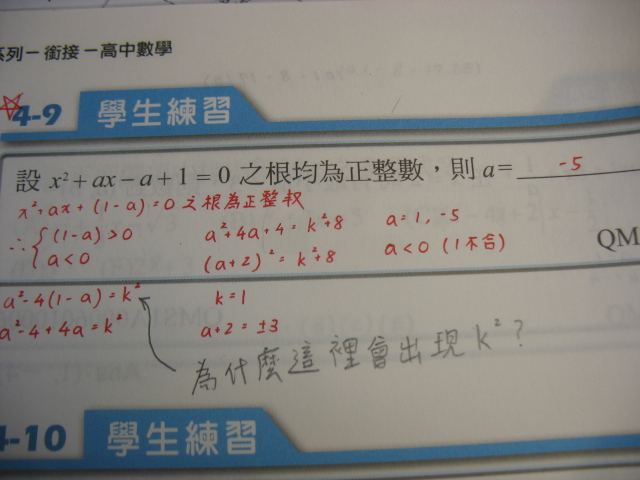 系列－銜接－高中數學
4-9 學生練習
設 x²+ax－a+1=0 之根均為正整數，則 a= -5
x²+ax+(1-a)=0 之根為正整數
∴ { (1-a)>0
a<0
a²+4a+4=k²+8
(a+2)²=k²+8
a=1, -5
a<0 (1不合)
QM
a²-4(1-a)=k²
a²-4+4a=k²
k=1
a+2=±3
為什麼這裡會出現 k²?
4-10 學生練習